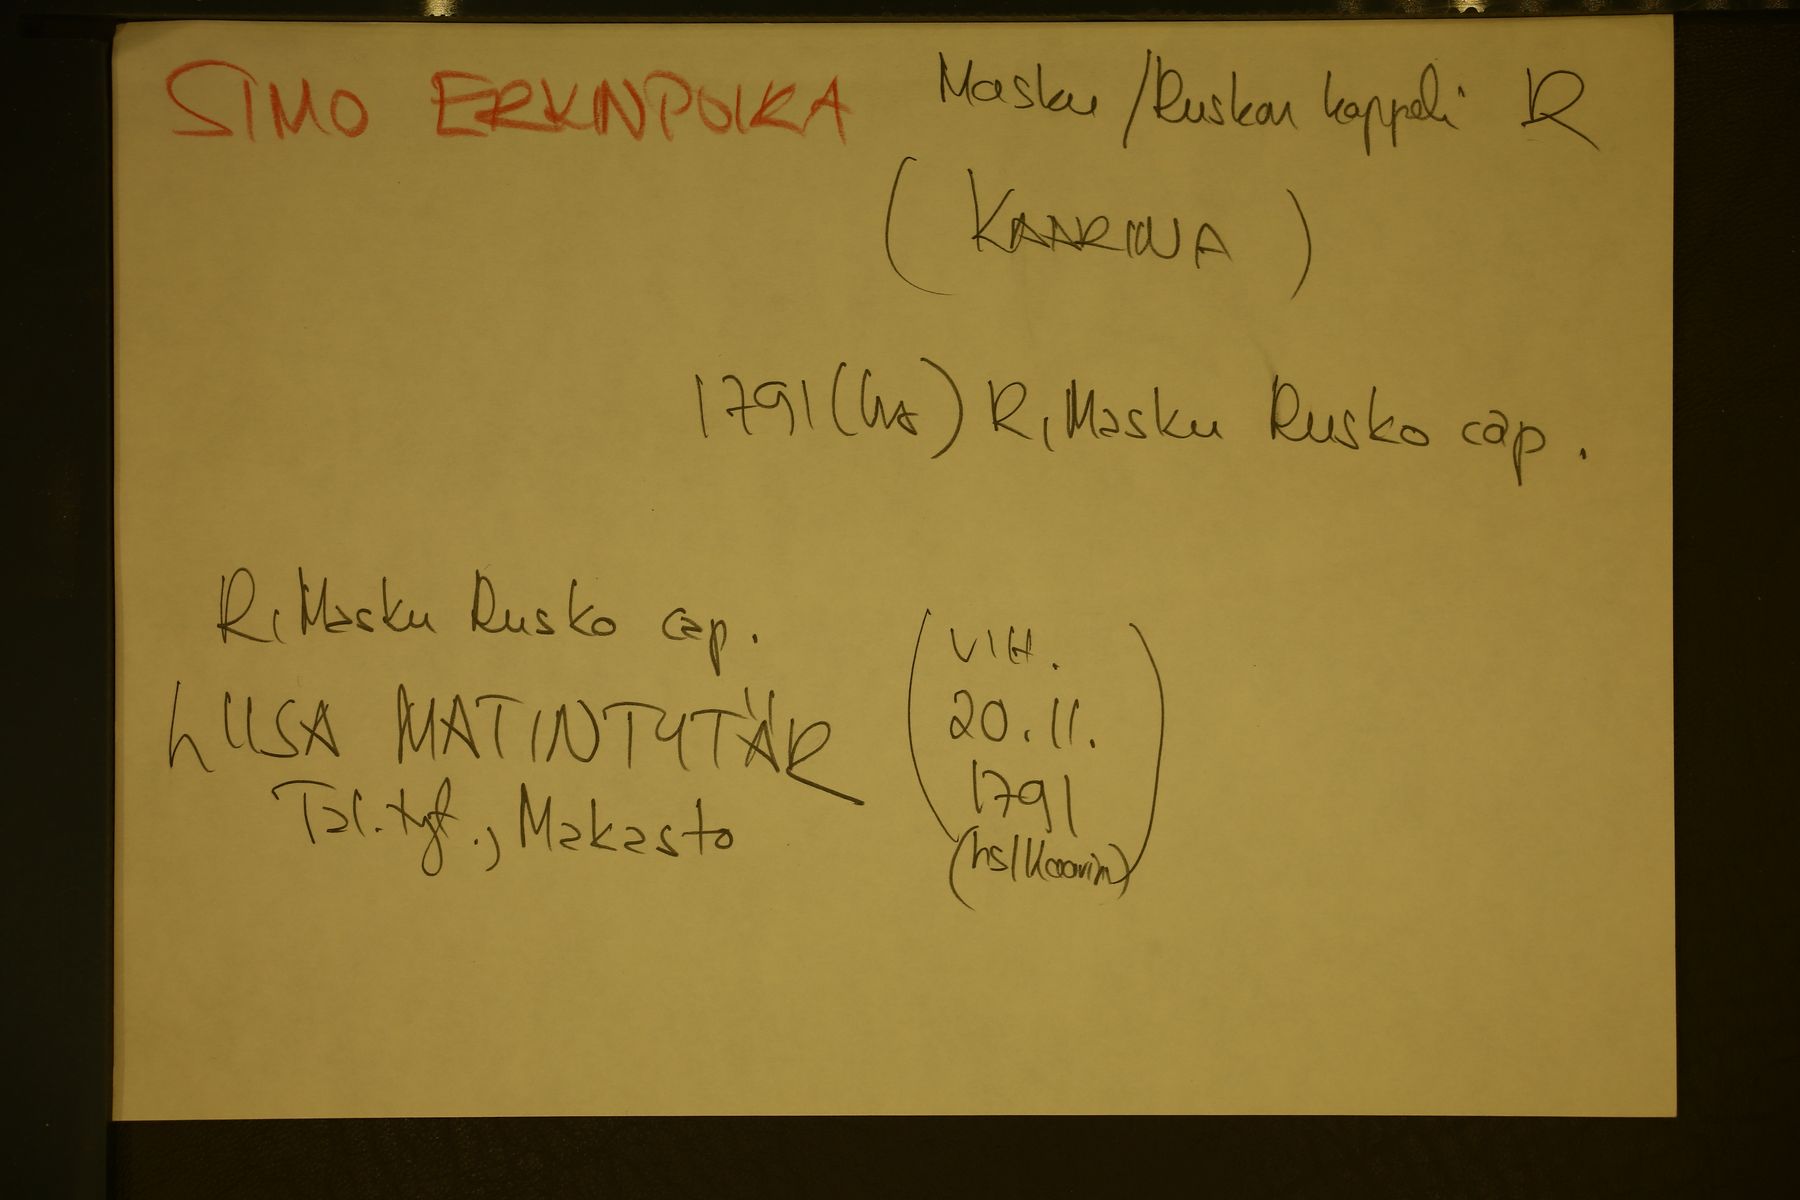 SIMO ERKINPOIKA Masku / Ruskon kappeli R
(KAARINA)
1791 (hs) R, Masku Rusko cap.
R, Masku Rusko cap.
LIISA MATINTYTÄR
Tal. tyt., Makasto
(VIH.
20.11.
1791
(hs/Kaarin)